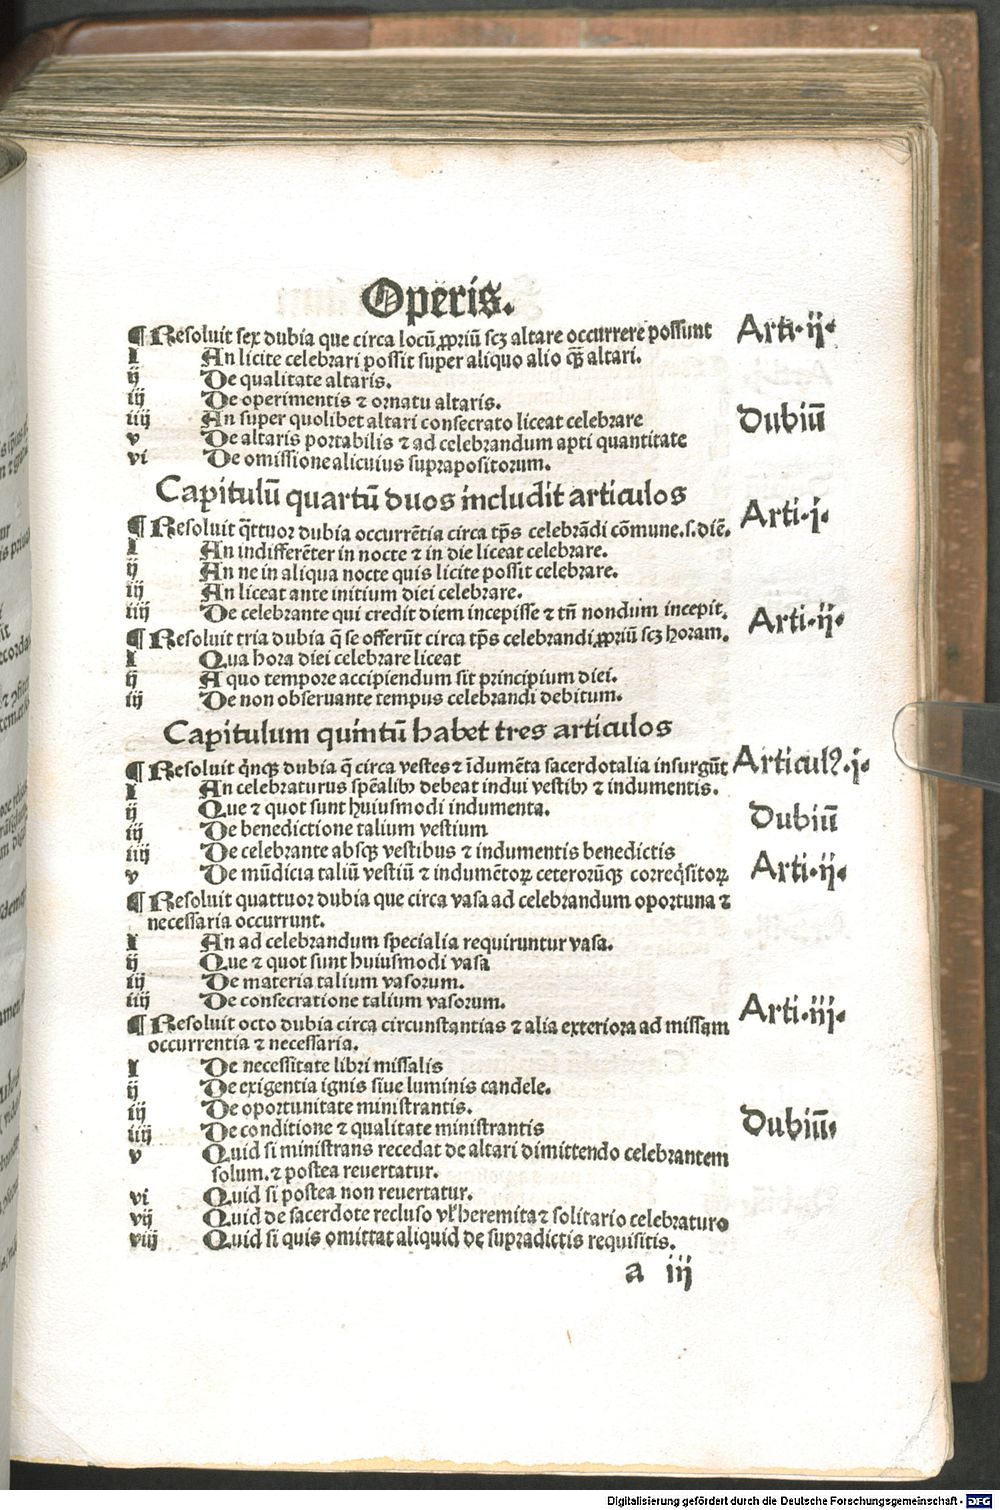 Operis.
¶ Resoluit sex dubia que circa locū ꝓpriū scꝫ altare occurrere possunt Arti·ij·
i An licite celebrari possit super aliquo alio qꝫ̄ altari.
ij De qualitate altaris.
iij De operimentis ⁊ ornatu altaris.
iiij An super quolibet altari consecrato liceat celebrare Dubiū
v De altaris portabilis ⁊ ad celebrandum apti quantitate
vi De omissione alicuius suprapositorum.
Capitulū quartū duos includit articulos
¶ Resoluit q̄ttuor dubia occurrētia circa tp̄s celebrādi cōmune.s.diē. Arti·j·
i An indifferēter in nocte ⁊ in die liceat celebrare.
ij An ne in aliqua nocte quis licite possit celebrare.
iij An liceat ante initium diei celebrare.
iiij De celebrante qui credit diem incepisse ⁊ tn̄ nondum incepit.
¶ Resoluit tria dubia q̄ se offerūt circa tp̄s celebrandi ꝓpriū scꝫ horam. Arti·ij·
i Qua hora diei celebrare liceat
ij A quo tempore accipiendum sit principium diei.
iij De non obseruante tempus celebrandi debitum.
Capitulum quintū habet tres articulos
¶ Resoluit q̄nqꝫ dubia q̄ circa vestes ⁊ īdumēta sacerdotalia insurgūt Articulꝰ·j·
i An celebraturus spēalibꝫ debeat indui vestibꝫ ⁊ indumentis.
ij Que ⁊ quot sunt huiusmodi indumenta.
iij De benedictione talium vestium Dubiū
iiij De celebrante absqꝫ vestibus ⁊ indumentis benedictis
v De mūdicia taliū vestiū ⁊ indumētoꝝ ceterorūqꝫ correq̄sitoꝝ Arti·ij·
¶ Resoluit quattuor dubia que circa vasa ad celebrandum oportuna ⁊
necessaria occurrunt.
i An ad celebrandum specialia requiruntur vasa.
ij Que ⁊ quot sunt huiusmodi vasa
iij De materia talium vasorum.
iiij De consecratione talium vasorum.
¶ Resoluit octo dubia circa circunstantias ⁊ alia exteriora ad missam Arti·iij·
occurrentia ⁊ necessaria.
i De necessitate libri missalis
ij De exigentia ignis siue luminis candele.
iij De oportunitate ministrantis.
iiij De conditione ⁊ qualitate ministrantis Dubiū·
v Quid si ministrans recedat de altari dimittendo celebrantem
solum.⁊ postea reuertatur.
vi Quid si postea non reuertatur.
vij Quid de sacerdote recluso vl' heremita ⁊ solitario celebraturo
viij Quid si quis omittat aliquid de supradictis requisitis.
a iij
Digitalisierung gefördert durch die Deutsche Forschungsgemeinschaft - DFG